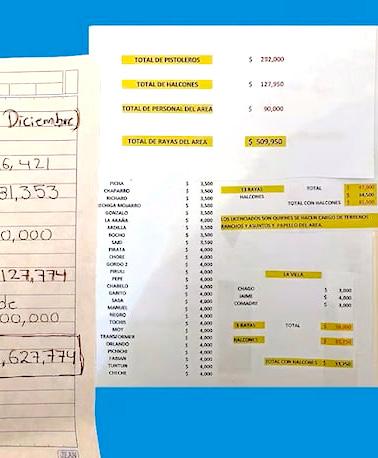 Diciembre)
6,421
31,353
0,000
127,774
de
00,000
,627,774
TOTAL DE PISTOLEROS $ 292,000
TOTAL DE HALCONES $ 127,950
TOTAL DE PERSONAL DEL AREA $ 90,000
TOTAL DE RAYAS DEL AREA $ 509,950
PICHA $ 3,500
CHAPARRO $ 3,500
RICHARD $ 3,500
$ 3,500
GONZALO $ 3,500
LA ARAÑA $ 4,000
ARDILLA $ 3,500
BOCHO $ 3,500
SAID $ 3,500
PIRATA $ 4,000
CHORE $ 4,000
GORDO 2 $ 4,000
PIRULI $ 4,000
PEPE $ 4,000
CHABELO $ 4,000
GANITO $ 4,000
SASA $ 4,000
MANUEL $ 4,000
NEGRO $ 4,000
TOCHIS $ 4,000
MOY $ 4,000
TRANSFORMER $ 4,000
ORLANDO $ 4,000
PICHICHI $ 4,000
FABIAN $ 4,000
TUNTUN $ 4,000
CHECHE $ 4,000
13 RAYAS TOTAL $ 47,000
HALCONES $ 34,500
TOTAL CON HALCONES $ 81,500
LOS LICENCIADOS SON QUIENES SE HACEN CARGO DE TERRENOS
RANCHOS Y ASUNTOS Y PAPELEO DEL AREA.
LA VILLA
CHAGO $ 3,000
JAIME $ 4,000
COMADRE $ 3,000
3 RAYAS TOTAL $ 10,000
HALCONES $
TOTAL CON HALCONES $